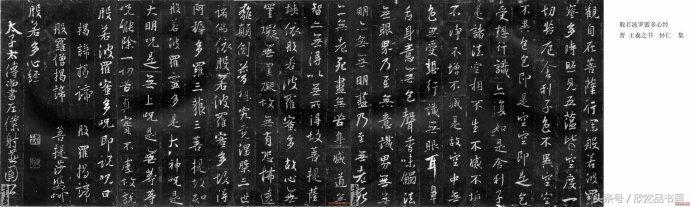 般若波罗蜜多心经
晋 王羲之书 怀仁 集
觀自在菩薩行深般若波羅
蜜多時照見五蘊皆空度一
切苦厄舍利子色不異空空
不異色色即是空空即是色
受想行識亦復如是舍利子
是諸法空相不生不滅不垢
不淨不增不減是故空中無
色無受想行識無眼耳鼻
舌身意無色聲香味觸法無
眼界乃至無意識界無無
明亦無無明盡乃至無老死
亦無老死盡無苦集滅道無
智亦無得以無所得故菩提薩
埵依般若波羅蜜多故心無
罣礙無罣礙故無有恐怖遠
離顛倒夢想究竟涅槃三世
諸佛依般若波羅蜜多故得
阿耨多羅三藐三菩提故知
般若波羅蜜多是大神咒是
大明咒是無上咒是無等等
咒能除一切苦真實不虛故說
般若波羅蜜多咒即說咒曰
揭諦揭諦 般羅揭諦
般羅僧揭諦 菩提莎婆呵
般若多心經
太子太傅尚書左僕射燕國
头条号 / 品书画